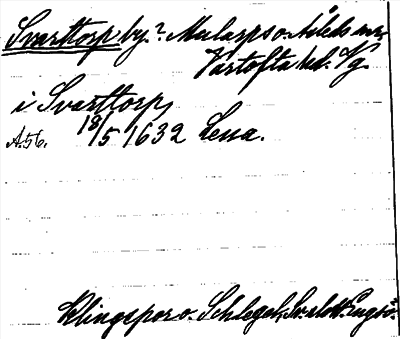 Svarttorp by.? Mularps o. Åsleds snr,
Vartofta hd. Vg.
i Svarttorp,
A.56. 18/5 1632 Lena.
Klingspor o. Schlegel, Sv. slott. Engsö.